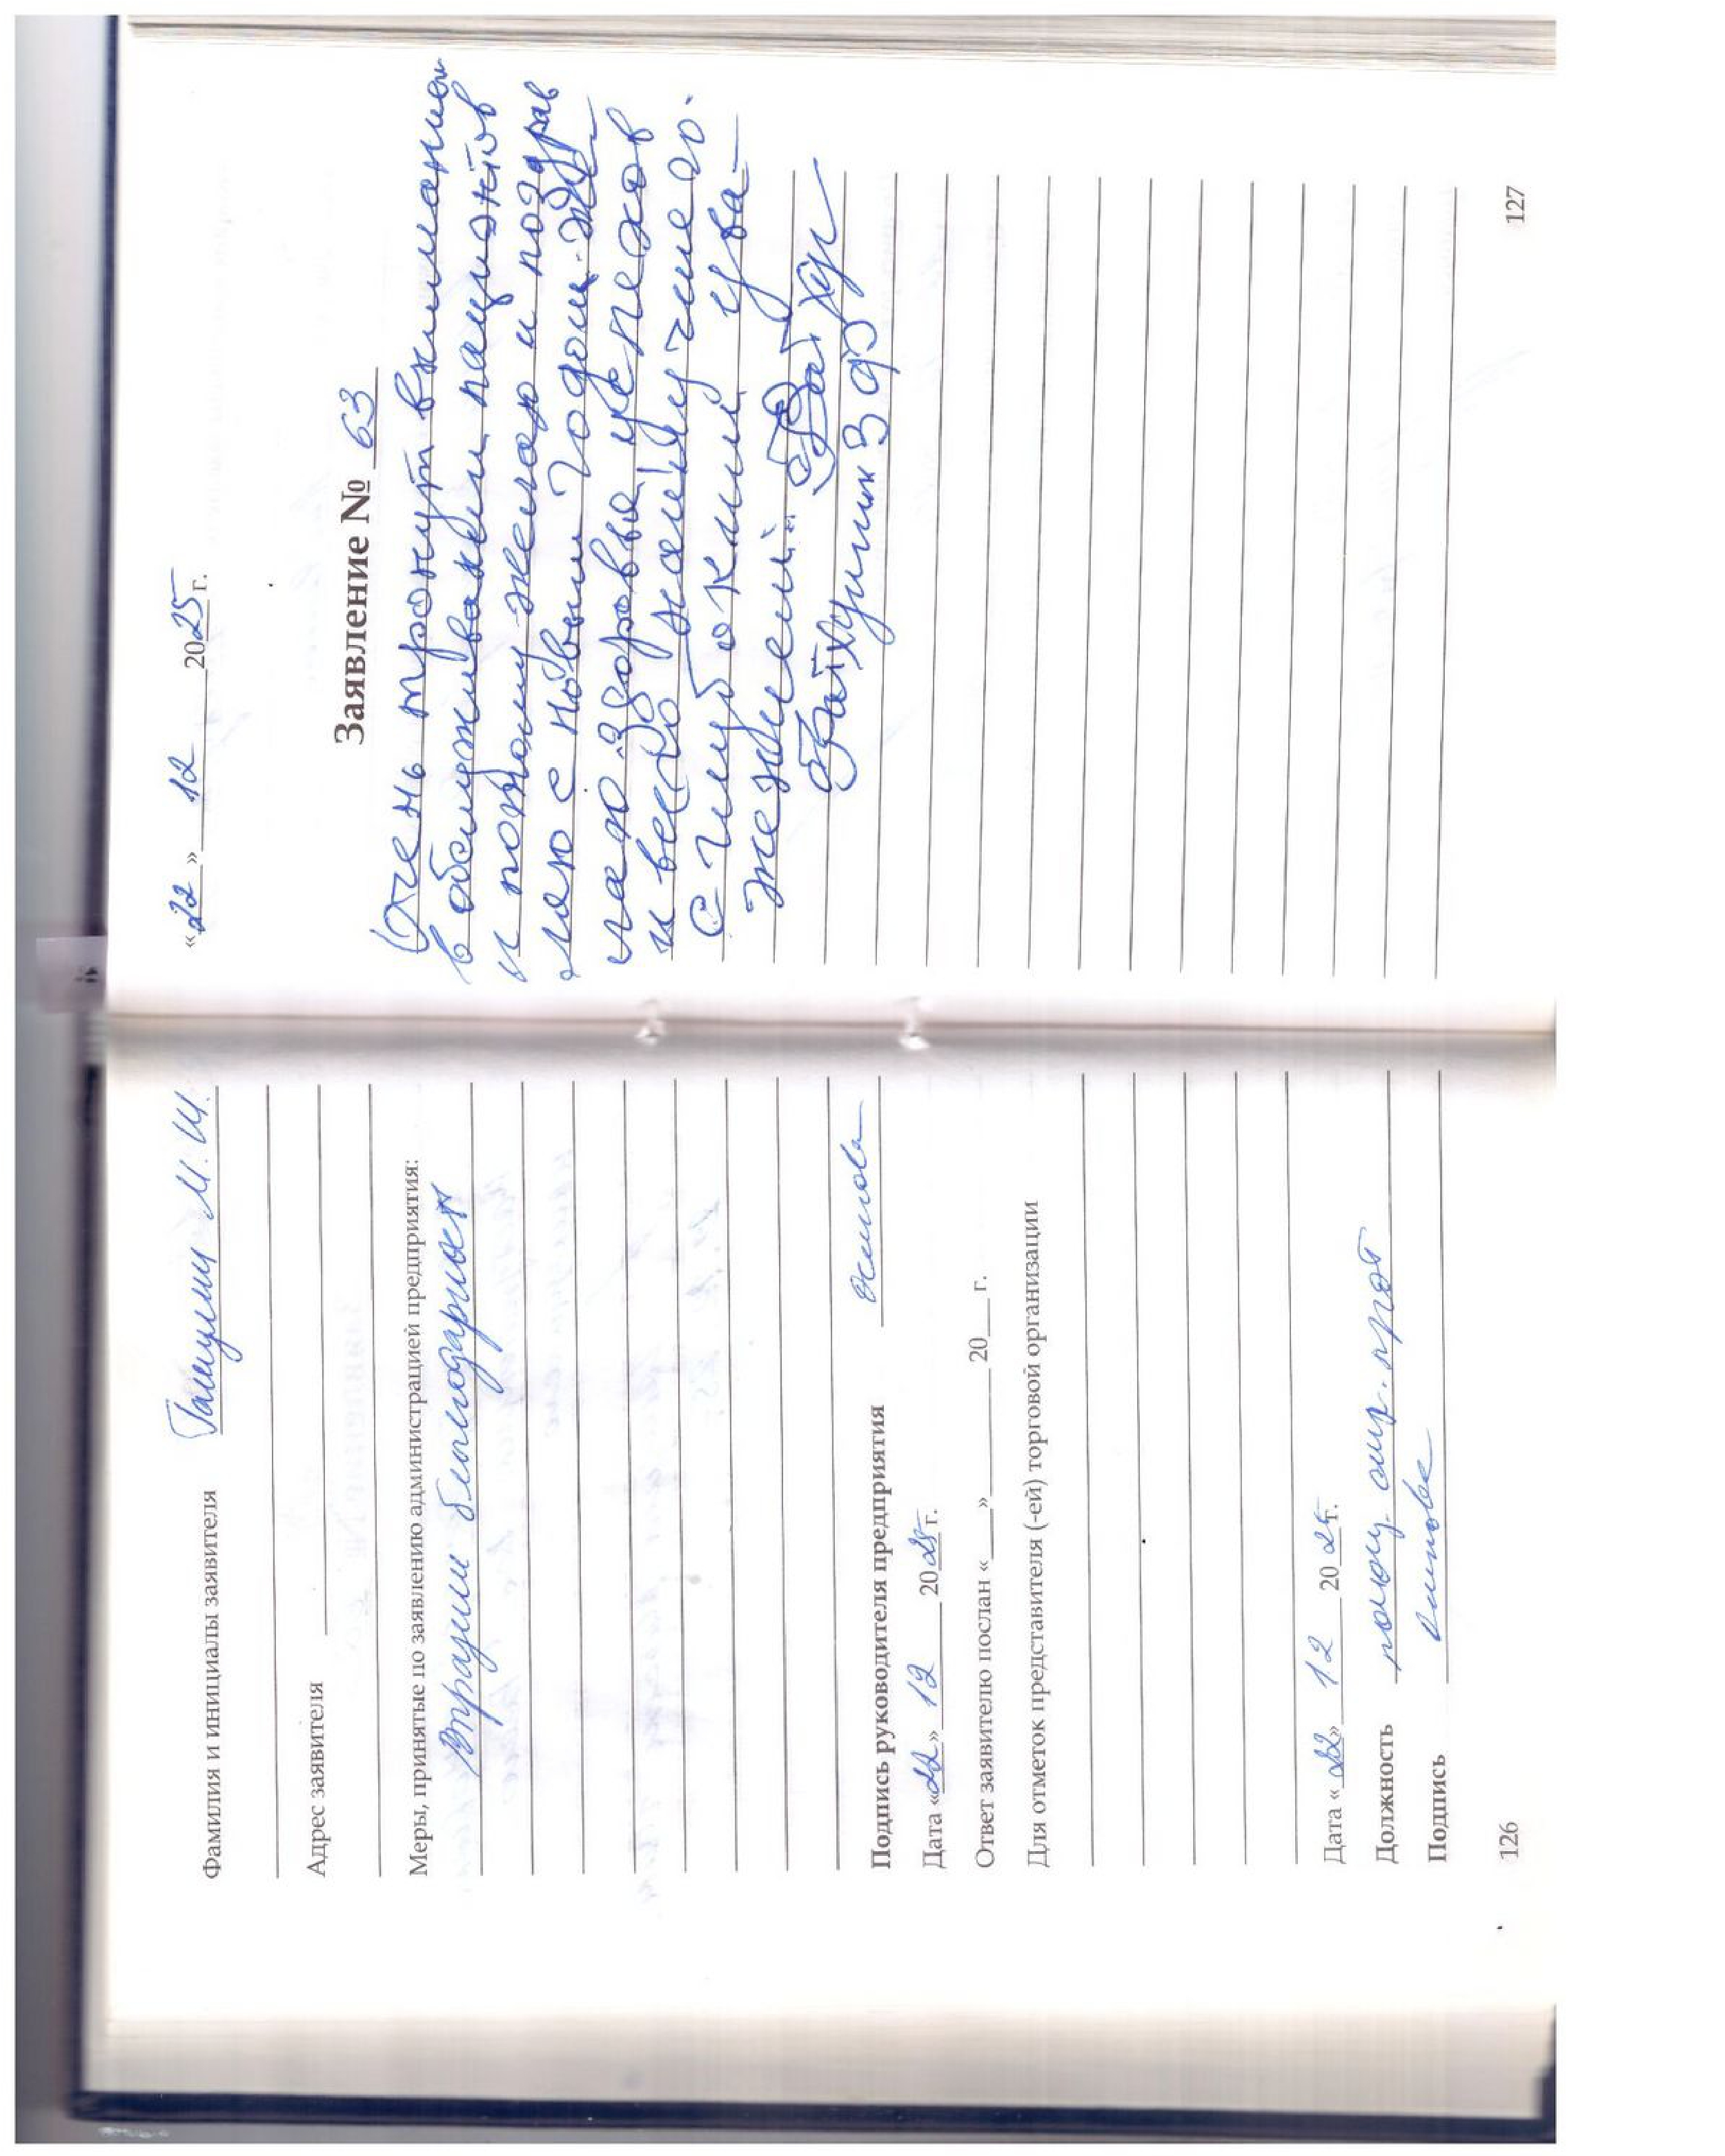 Фамилия и инициалы заявителя М. Ш.
Адрес заявителя
Меры, принятые по заявлению администрацией предприятия:
благодарность
Подпись руководителя предприятия
Дата «22» 12 2025 г.
Ответ заявителю послан «___» ______ 20___ г.
Для отметок представителя (-ей) торговой организации
Дата «22» 12 2025 г.
Должность
Подпись
126
«22» 12 2025 г.
Заявление № 63
Очень тронут вниманием
в обслуживании пациентов
и потому желаю и поздрав
ляю с новым Годом. Же
лаю здоровья, успехов
и всего наилучшего.
С глубоким ува-
жением.
127